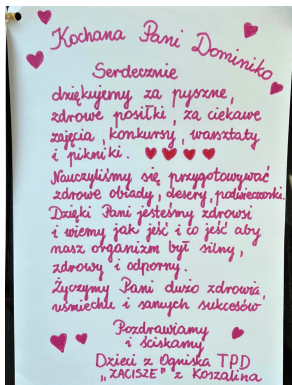 Kochana Pani Dominiko
Serdecznie
dziękujemy za pyszne,
zdrowe posiłki, za ciekawe
zajęcia, konkursy, warsztaty
i pikniki.
Nauczyliśmy się przygotowywać
zdrowe obiady, desery, podwieczorki.
Dzięki Pani jesteśmy zdrowsi
i wiemy jak jeść i co jeść aby
nasz organizm był silny,
zdrowy i odporny.
Życzymy Pani dużo zdrowia,
uśmiechu i samych sukcesów
Pozdrawiamy
i ściskamy
Dzieci z Ogniska TPD
„ZACISZE" z Koszalina